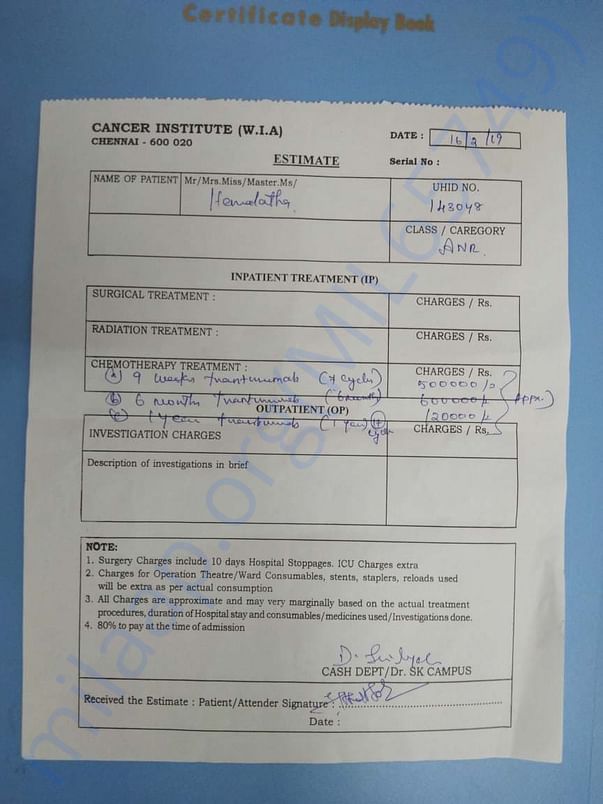 Certificate Display Book
CANCER INSTITUTE (W.I.A)
CHENNAI - 600 020
DATE : 16/2/19
ESTIMATE
Serial No :
NAME OF PATIENT Mr/Mrs.Miss/Master.Ms/
Hemalatha
UHID NO.
143048
CLASS / CAREGORY
ANR.
INPATIENT TREATMENT (IP)
SURGICAL TREATMENT : CHARGES / Rs.
RADIATION TREATMENT : CHARGES / Rs.
CHEMOTHERAPY TREATMENT : CHARGES / Rs.
(a) 9 weeks (4 cycles) 500000/-
(b) 6 months (6 months) 600000/-
OUTPATIENT (OP)
(c) 1 year (1 year)
INVESTIGATION CHARGES CHARGES / Rs.
Description of investigations in brief
NOTE:
1. Surgery Charges include 10 days Hospital Stoppages. ICU Charges extra
2. Charges for Operation Theatre/Ward Consumables, stents, staplers, reloads used
will be extra as per actual consumption
3. All Charges are approximate and may very marginally based on the actual treatment
procedures, duration of Hospital stay and consumables/medicines used/Investigations done.
4. 80% to pay at the time of admission
CASH DEPT/Dr. SK CAMPUS
Received the Estimate : Patient/Attender Signature :
Date :
milaap.org(MIL65749)